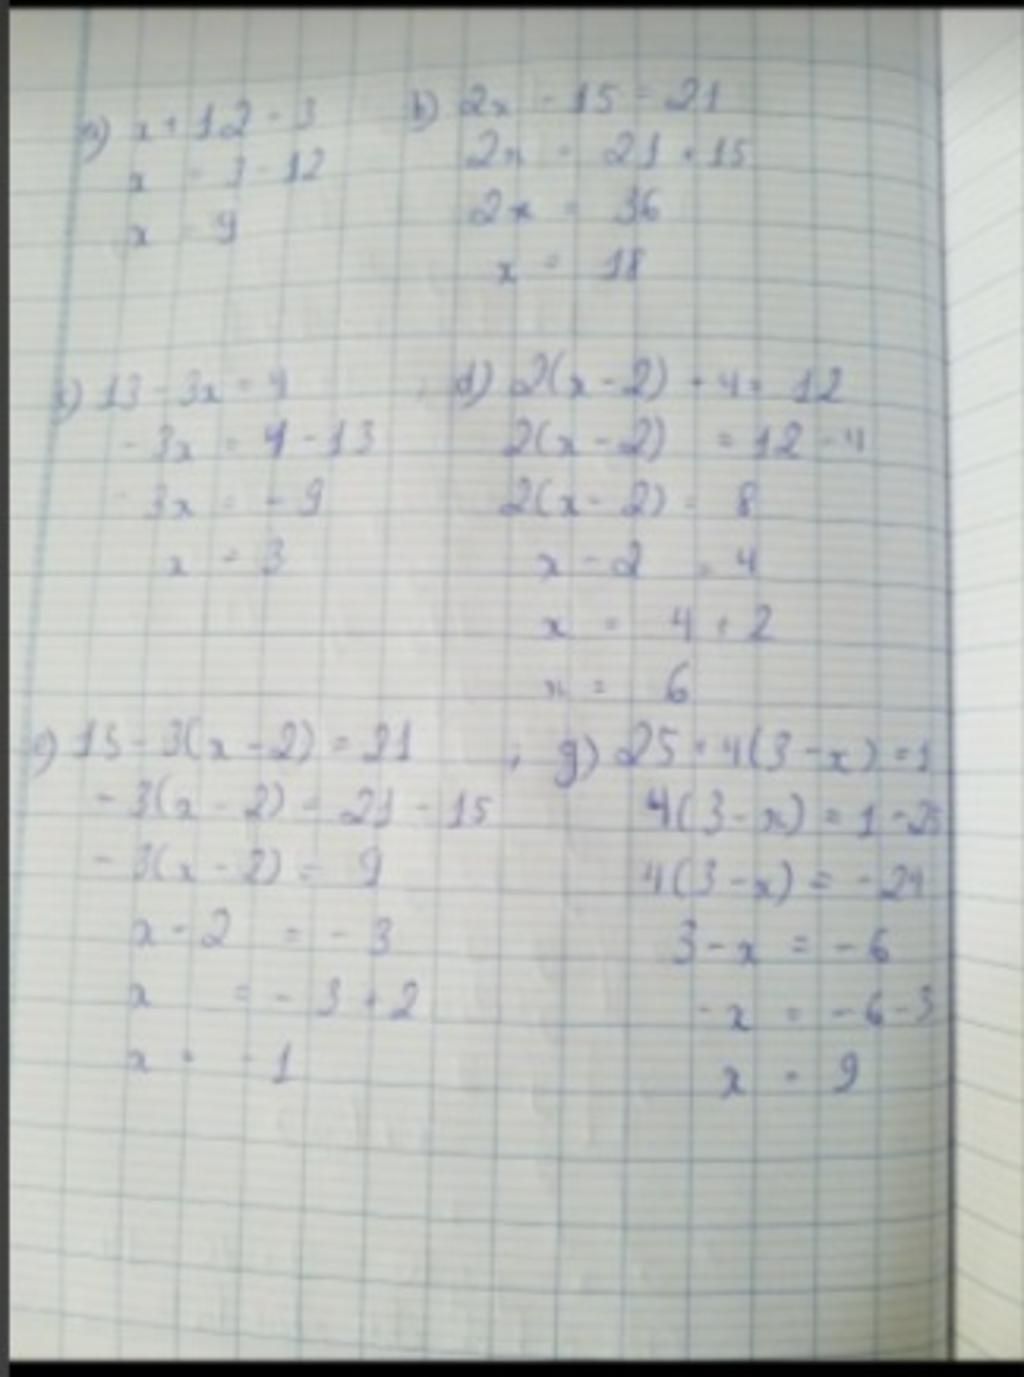 a) x + 12 = 3
x = 3 - 12
x = 9
b) 2x - 15 = 21
2x = 21 + 15
2x = 36
x = 18
13 - 3x = 4
- 3x = 4 - 13
- 3x = - 9
x = 3
d) 2(x - 2) + 4 = 12
2(x - 2) = 12 - 4
2(x - 2) = 8
x - 2 = 4
x = 4 + 2
x = 6
15 - 3(x - 2) = 21
- 3(x - 2) = 21 - 15
- 3(x - 2) = 9
x - 2 = - 3
x = - 3 + 2
x = - 1
; g) 25 + 4(3 - x) = 1
4(3 - x) = 1 - 25
4(3 - x) = - 24
3 - x = - 6
- x = - 6 - 3
x = 9